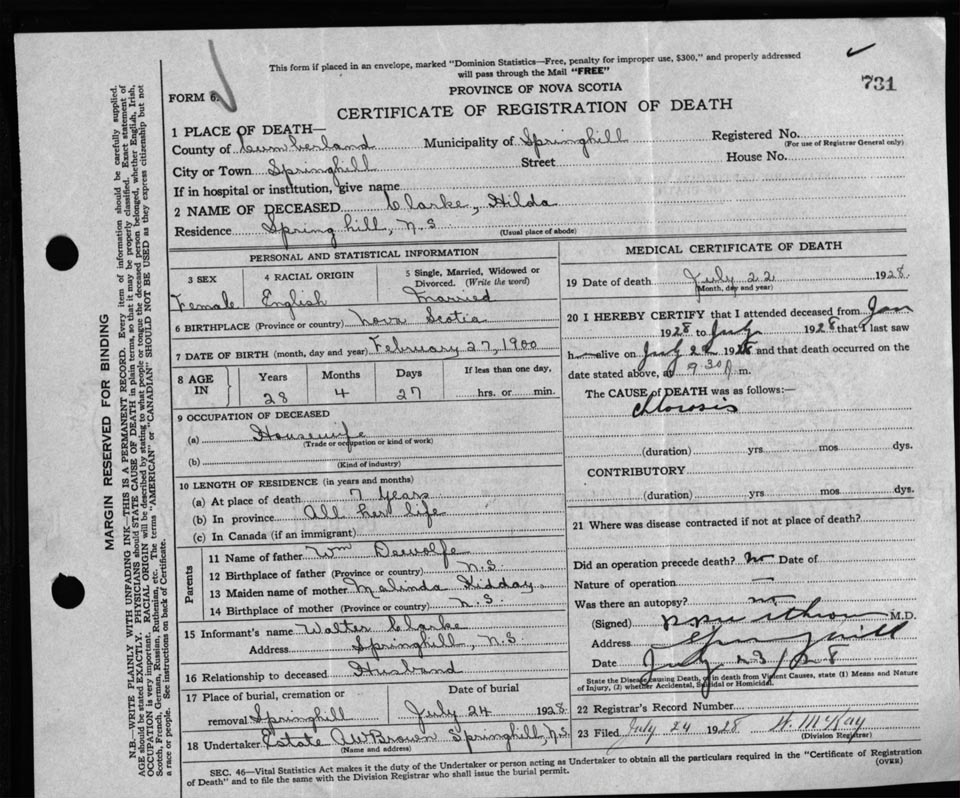 This form if placed in an envelope, marked "Dominion Statistics—Free, penalty for improper use, $300," and properly addressed
will pass through the Mail "FREE"
731
FORM 6.
PROVINCE OF NOVA SCOTIA
CERTIFICATE OF REGISTRATION OF DEATH
1 PLACE OF DEATH—
County of Cumberland Municipality of Springhill Registered No.
(For use of Registrar General only)
City or Town Springhill Street House No.
If in hospital or institution, give name
2 NAME OF DECEASED Clarke, Hilda
Residence Springhill, N.S.
(Usual place of abode)
PERSONAL AND STATISTICAL INFORMATION
3 SEX 4 RACIAL ORIGIN 5 Single, Married, Widowed or
Divorced. (Write the word)
Female English Married
6 BIRTHPLACE (Province or country) Nova Scotia
7 DATE OF BIRTH (month, day and year) February 27, 1900
8 AGE IN Years Months Days If less than one day,
28 4 27 hrs. or min.
9 OCCUPATION OF DECEASED
(a) Housewife
(Trade or occupation or kind of work)
(b)
(Kind of industry)
10 LENGTH OF RESIDENCE (in years and months)
(a) At place of death 7 Years
(b) In province All her life
(c) In Canada (if an immigrant)
Parents
11 Name of father Wm Dewolfe
12 Birthplace of father (Province or country) N.S.
13 Maiden name of mother Malinda Kidday
14 Birthplace of mother (Province or country) N.S.
15 Informant's name Walter Clarke
Address Springhill, N.S.
16 Relationship to deceased Husband
17 Place of burial, cremation or Date of burial
removal Springhill July 24 1928
18 Undertaker Estate AW Brown Springhill, N.S.
(Name and address)
MEDICAL CERTIFICATE OF DEATH
19 Date of death July 22 1928
(Month, day and year)
20 I HEREBY CERTIFY that I attended deceased from Jan
1928 to July 1928 that I last saw
h alive on July 22 1928 and that death occurred on the
date stated above, at 9.30 P m.
The CAUSE of DEATH was as follows:—
chlorosis
(duration) yrs. mos dys.
CONTRIBUTORY
(duration) yrs mos. dys.
21 Where was disease contracted if not at place of death?
Did an operation precede death? no Date of
Nature of operation —
Was there an autopsy? no
(Signed) M.D.
Address Springhill
Date July 23/28
State the Disease causing Death, or in death from Violent Causes, state (1) Means and Nature
of Injury, (2) whether Accidental, Suicidal or Homicidal.
22 Registrar's Record Number
23 Filed July 24 1928 H. McKay
(Division Registrar)
SEC. 46—Vital Statistics Act makes it the duty of the Undertaker or person acting as Undertaker to obtain all the particulars required in the "Certificate of Registration
of Death" and to file the same with the Division Registrar who shall issue the burial permit. (OVER)
MARGIN RESERVED FOR BINDING
N.B.—WRITE PLAINLY WITH UNFADING INK—THIS IS A PERMANENT RECORD. Every item of information should be carefully supplied.
AGE should be stated EXACTLY. PHYSICIANS should STATE CAUSE OF DEATH in plain terms, so that it may be properly classified. Exact statement of
OCCUPATION is very important. RACIAL ORIGIN will be described by stating to what people or tongue the deceased person belonged, whether English, Irish,
Scotch, French, German, Russian, Ruthenian, etc. The terms "AMERICAN" or "CANADIAN" SHOULD NOT BE USED as they express citizenship but not
a race or people. See instructions on back of Certificate.